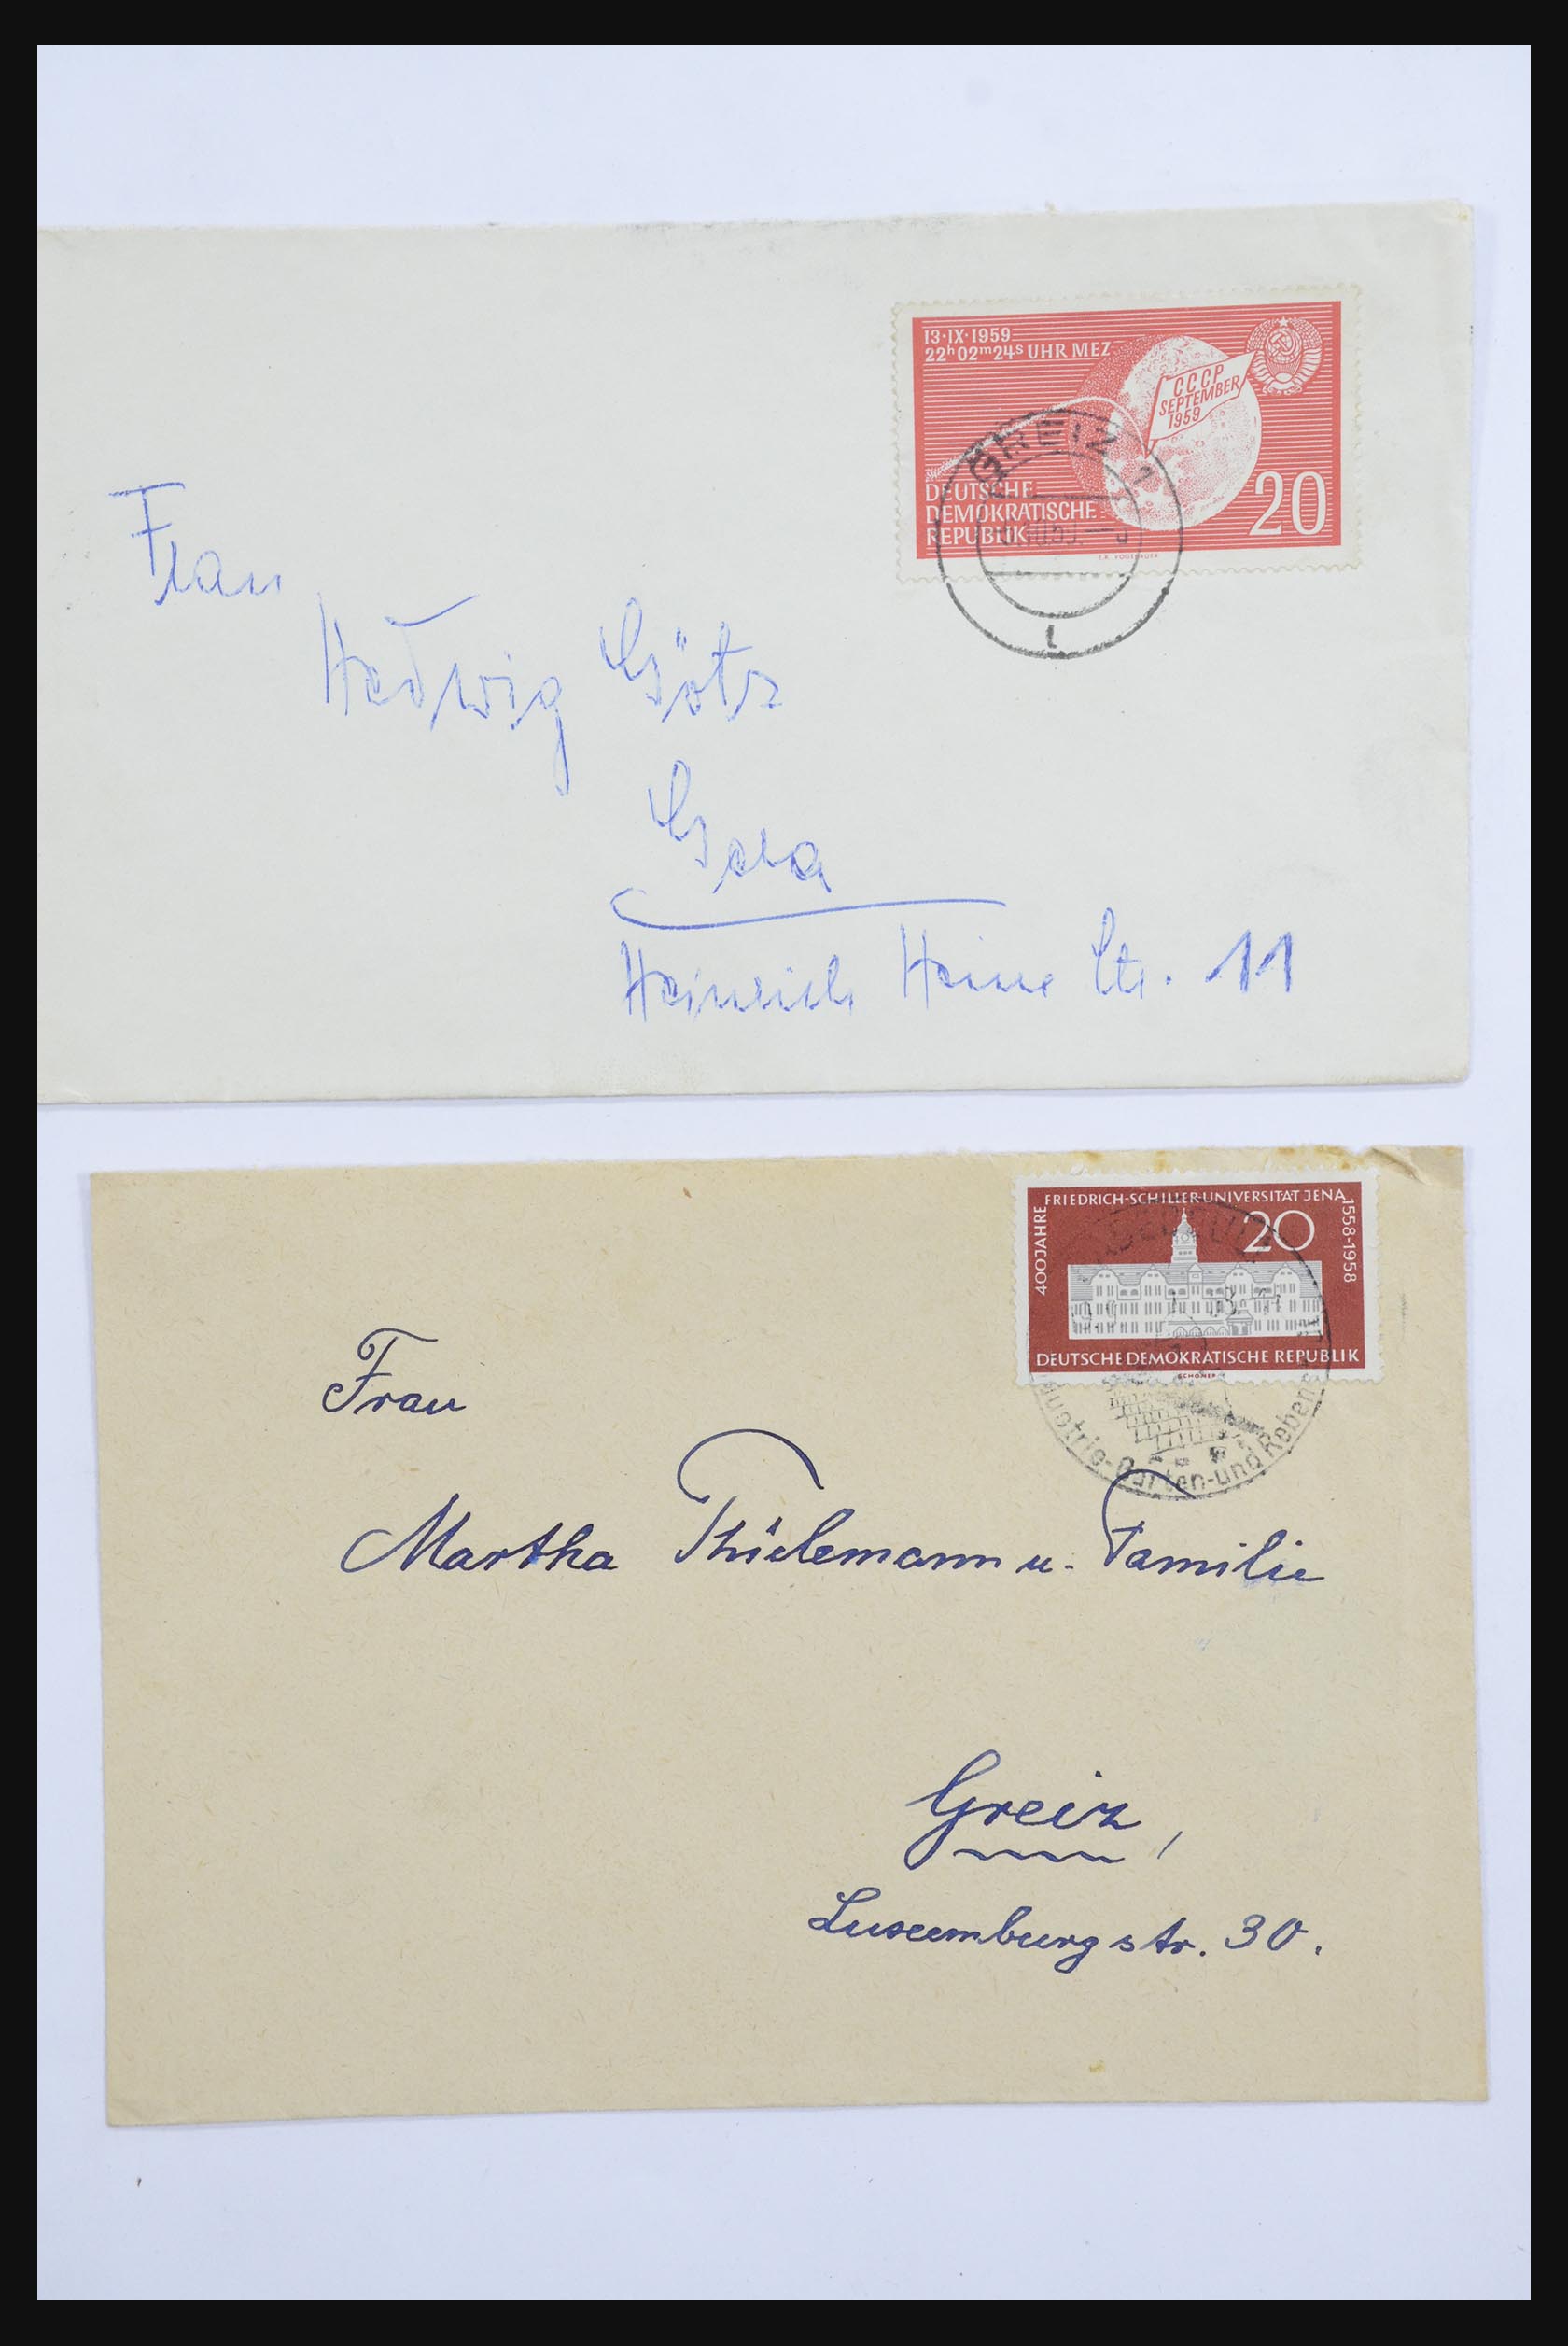 13·IX·1959
22h02m24s UHR MEZ
CCCP
SEPTEMBER
1959
DEUTSCHE
DEMOKRATISCHE
REPUBLIK
20
GREIZ 1
Frau
Hedwig Götz
Gera
Heinrich Heine Str. 11
FRIEDRICH-SCHILLER-UNIVERSITÄT JENA
400 JAHRE
1558-1958
20
DEUTSCHE DEMOKRATISCHE REPUBLIK
SCHÖNER
Garten-und Rebens
Frau
Martha Thielemann u. Familie
Greiz,
Luxemburgstr. 30.